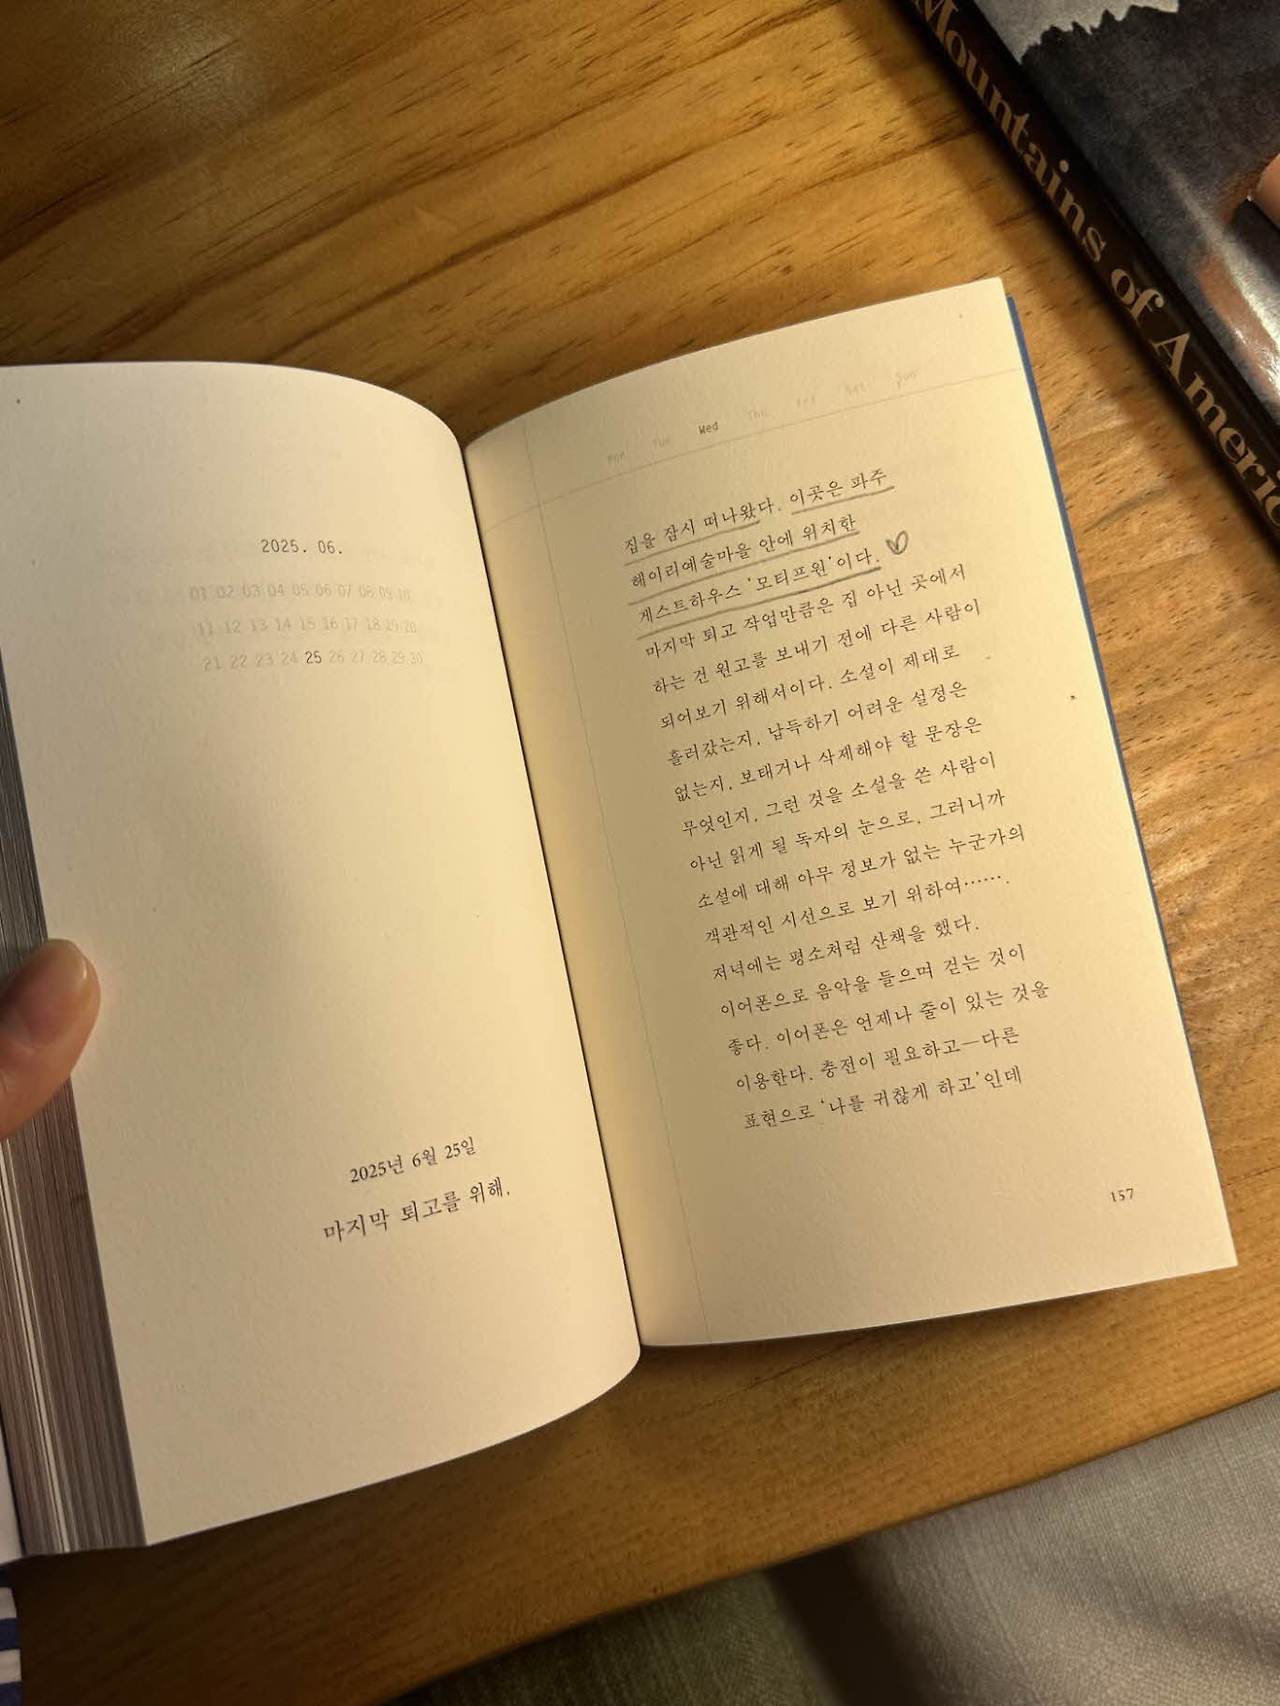 2025. 06.
01 02 03 04 05 06 07 08 09 10
11 12 13 14 15 16 17 18 19 20
21 22 23 24 25 26 27 28 29 30
2025년 6월 25일
마지막 퇴고를 위해.
Mon Tue Wed Thu Fri Sat Sun
집을 잠시 떠나왔다. 이곳은 파주
헤이리예술마을 안에 위치한
게스트하우스 '모티프원'이다.
마지막 퇴고 작업만큼은 집 아닌 곳에서
하는 건 원고를 보내기 전에 다른 사람이
되어보기 위해서이다. 소설이 제대로
흘러갔는지, 납득하기 어려운 설정은
없는지, 보태거나 삭제해야 할 문장은
무엇인지, 그런 것을 소설을 쓴 사람이
아닌 읽게 될 독자의 눈으로, 그러니까
소설에 대해 아무 정보가 없는 누군가의
객관적인 시선으로 보기 위하여…….
저녁에는 평소처럼 산책을 했다.
이어폰으로 음악을 들으며 걷는 것이
좋다. 이어폰은 언제나 줄이 있는 것을
이용한다. 충전이 필요하고—다른
표현으로 '나를 귀찮게 하고'인데
157
Mountains of Americ